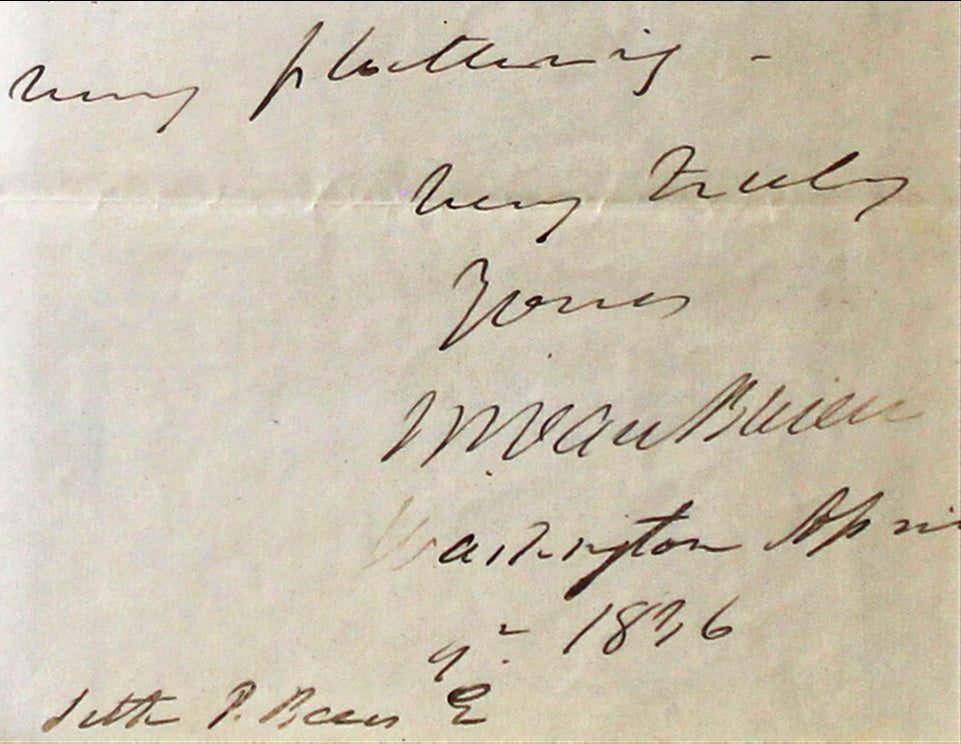 very flattering -
Very truly
Yours
M Van Buren
Washington April
9th 1836
Seth P. Beers E